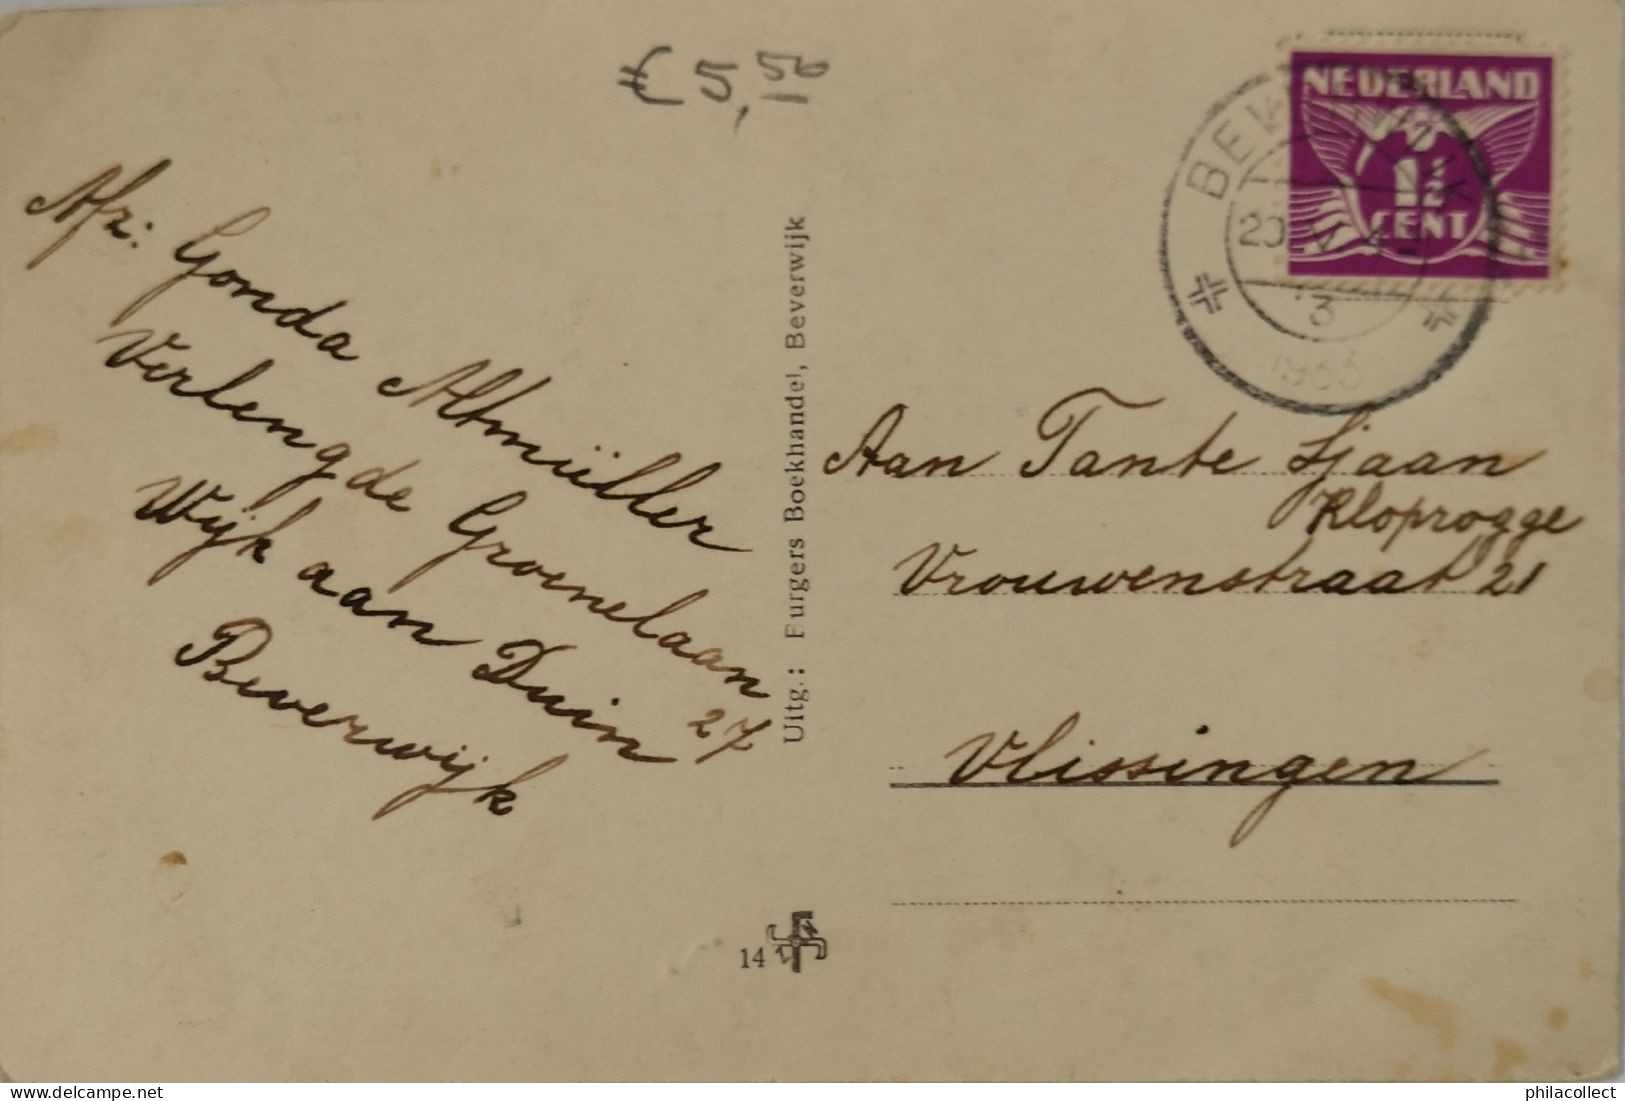 € 5,50
NEDERLAND
1½
CENT
BEVERWIJK
20
3
1933
Afz: Gonda Altmüller
Verlengde Groenelaan
27
Wijk aan Duin
Beverwijk
Uitg.: Eurgers Boekhandel, Beverwijk
Aan Tante Sjaan
Kloprogge
Vrouwenstraat 21
Vlissingen
14
delcampe.net
philacollect